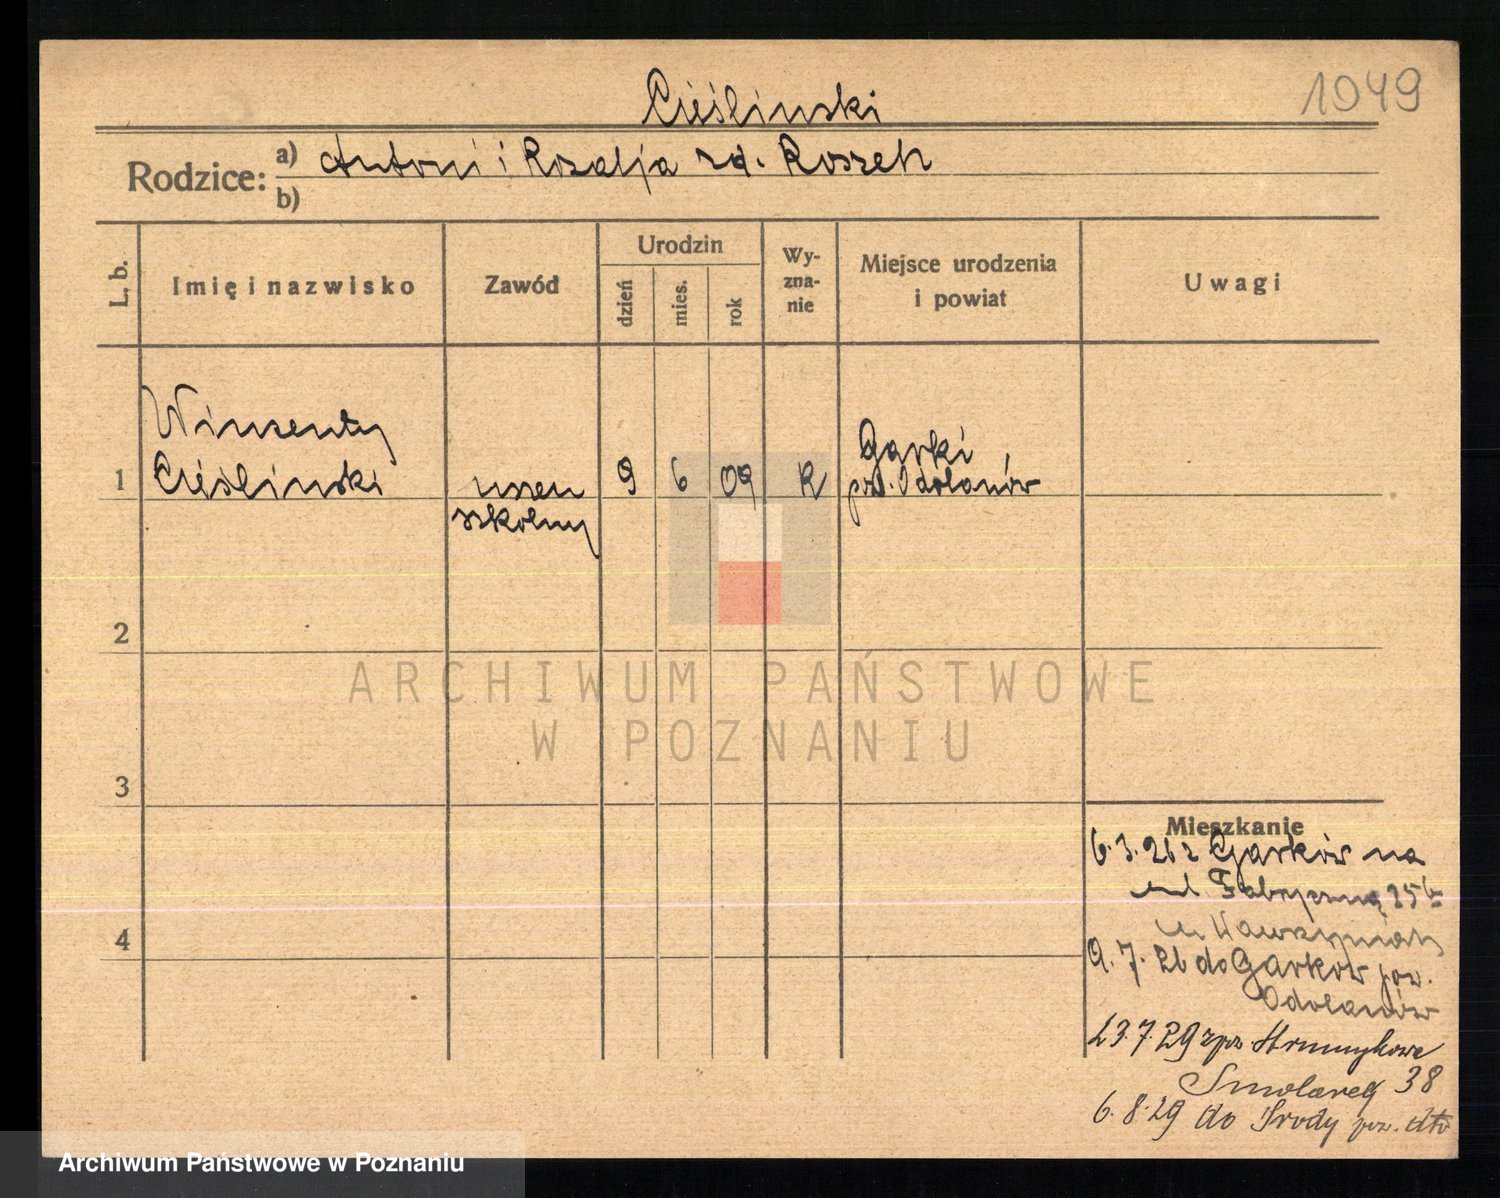 1049
Cieślinski
Rodzice: a) Antoni i Rozalja zd. Roszek
b)
L. b.
Imię i nazwisko
Zawód
Urodzin
dzień
mies.
rok
Wy-
zna-
nie
Miejsce urodzenia
i powiat
Uwagi
Winsenty
1 Cieślinski
uczeń
szkolny
9 6 09 R
Garki
pow. Odolanów
2
3
4
ARCHIWUM PAŃSTWOWE
W POZNANIU
Mieszkanie
6.3.26 z Garków na
ul. Fabryczną 25
u Wawrzyniak
9.7.26 do Garków pow.
Odolanów
23.7.29 z pow.
Smolarek 38
6.8.29 do Środy pow. dto
Archiwum Państwowe w Poznaniu